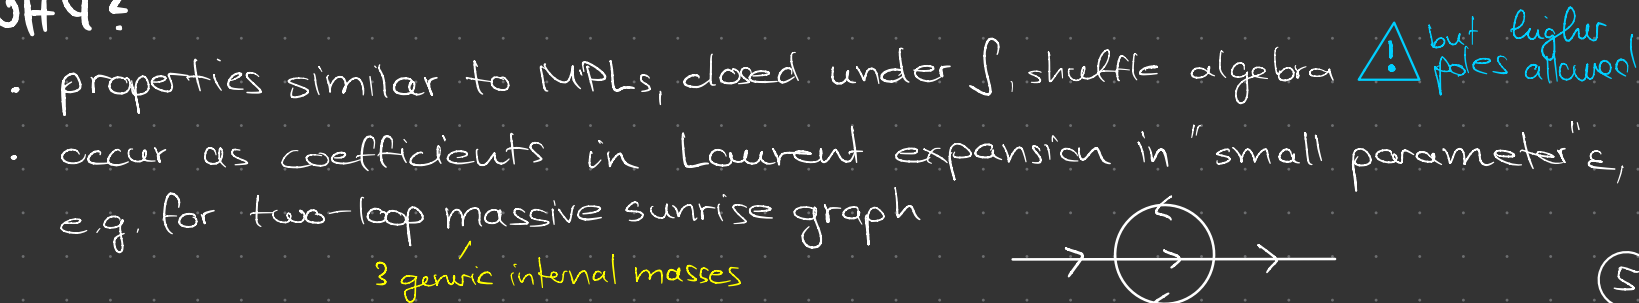 WHY?
· properties similar to MPLs, closed under ∫, shuffle algebra ⚠ but higher poles allowed!
· occur as coefficients in Laurent expansion in "small parameter" ε,
e.g. for two-loop massive sunrise graph
3 generic internal masses
5